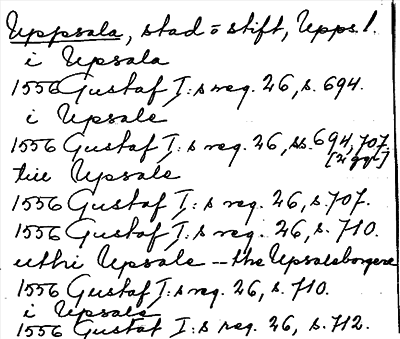 Uppsala, stad o stift, Uppl.
i Upsala
1556 Gustaf I:s reg. 26, s. 694.
i Upsale
1556 Gustaf I:s reg. 26, ss. 694, 707.
[2 ggr]
till Upsale
1556 Gustaf I:s reg. 26, s. 707.
1556 Gustaf I:s reg. 26, s. 710.
uthi Upsale — the Upsaleborgere
1556 Gustaf I:s reg. 26, s. 710.
i Upsale
1556 Gustaf I:s reg. 26, s. 712.